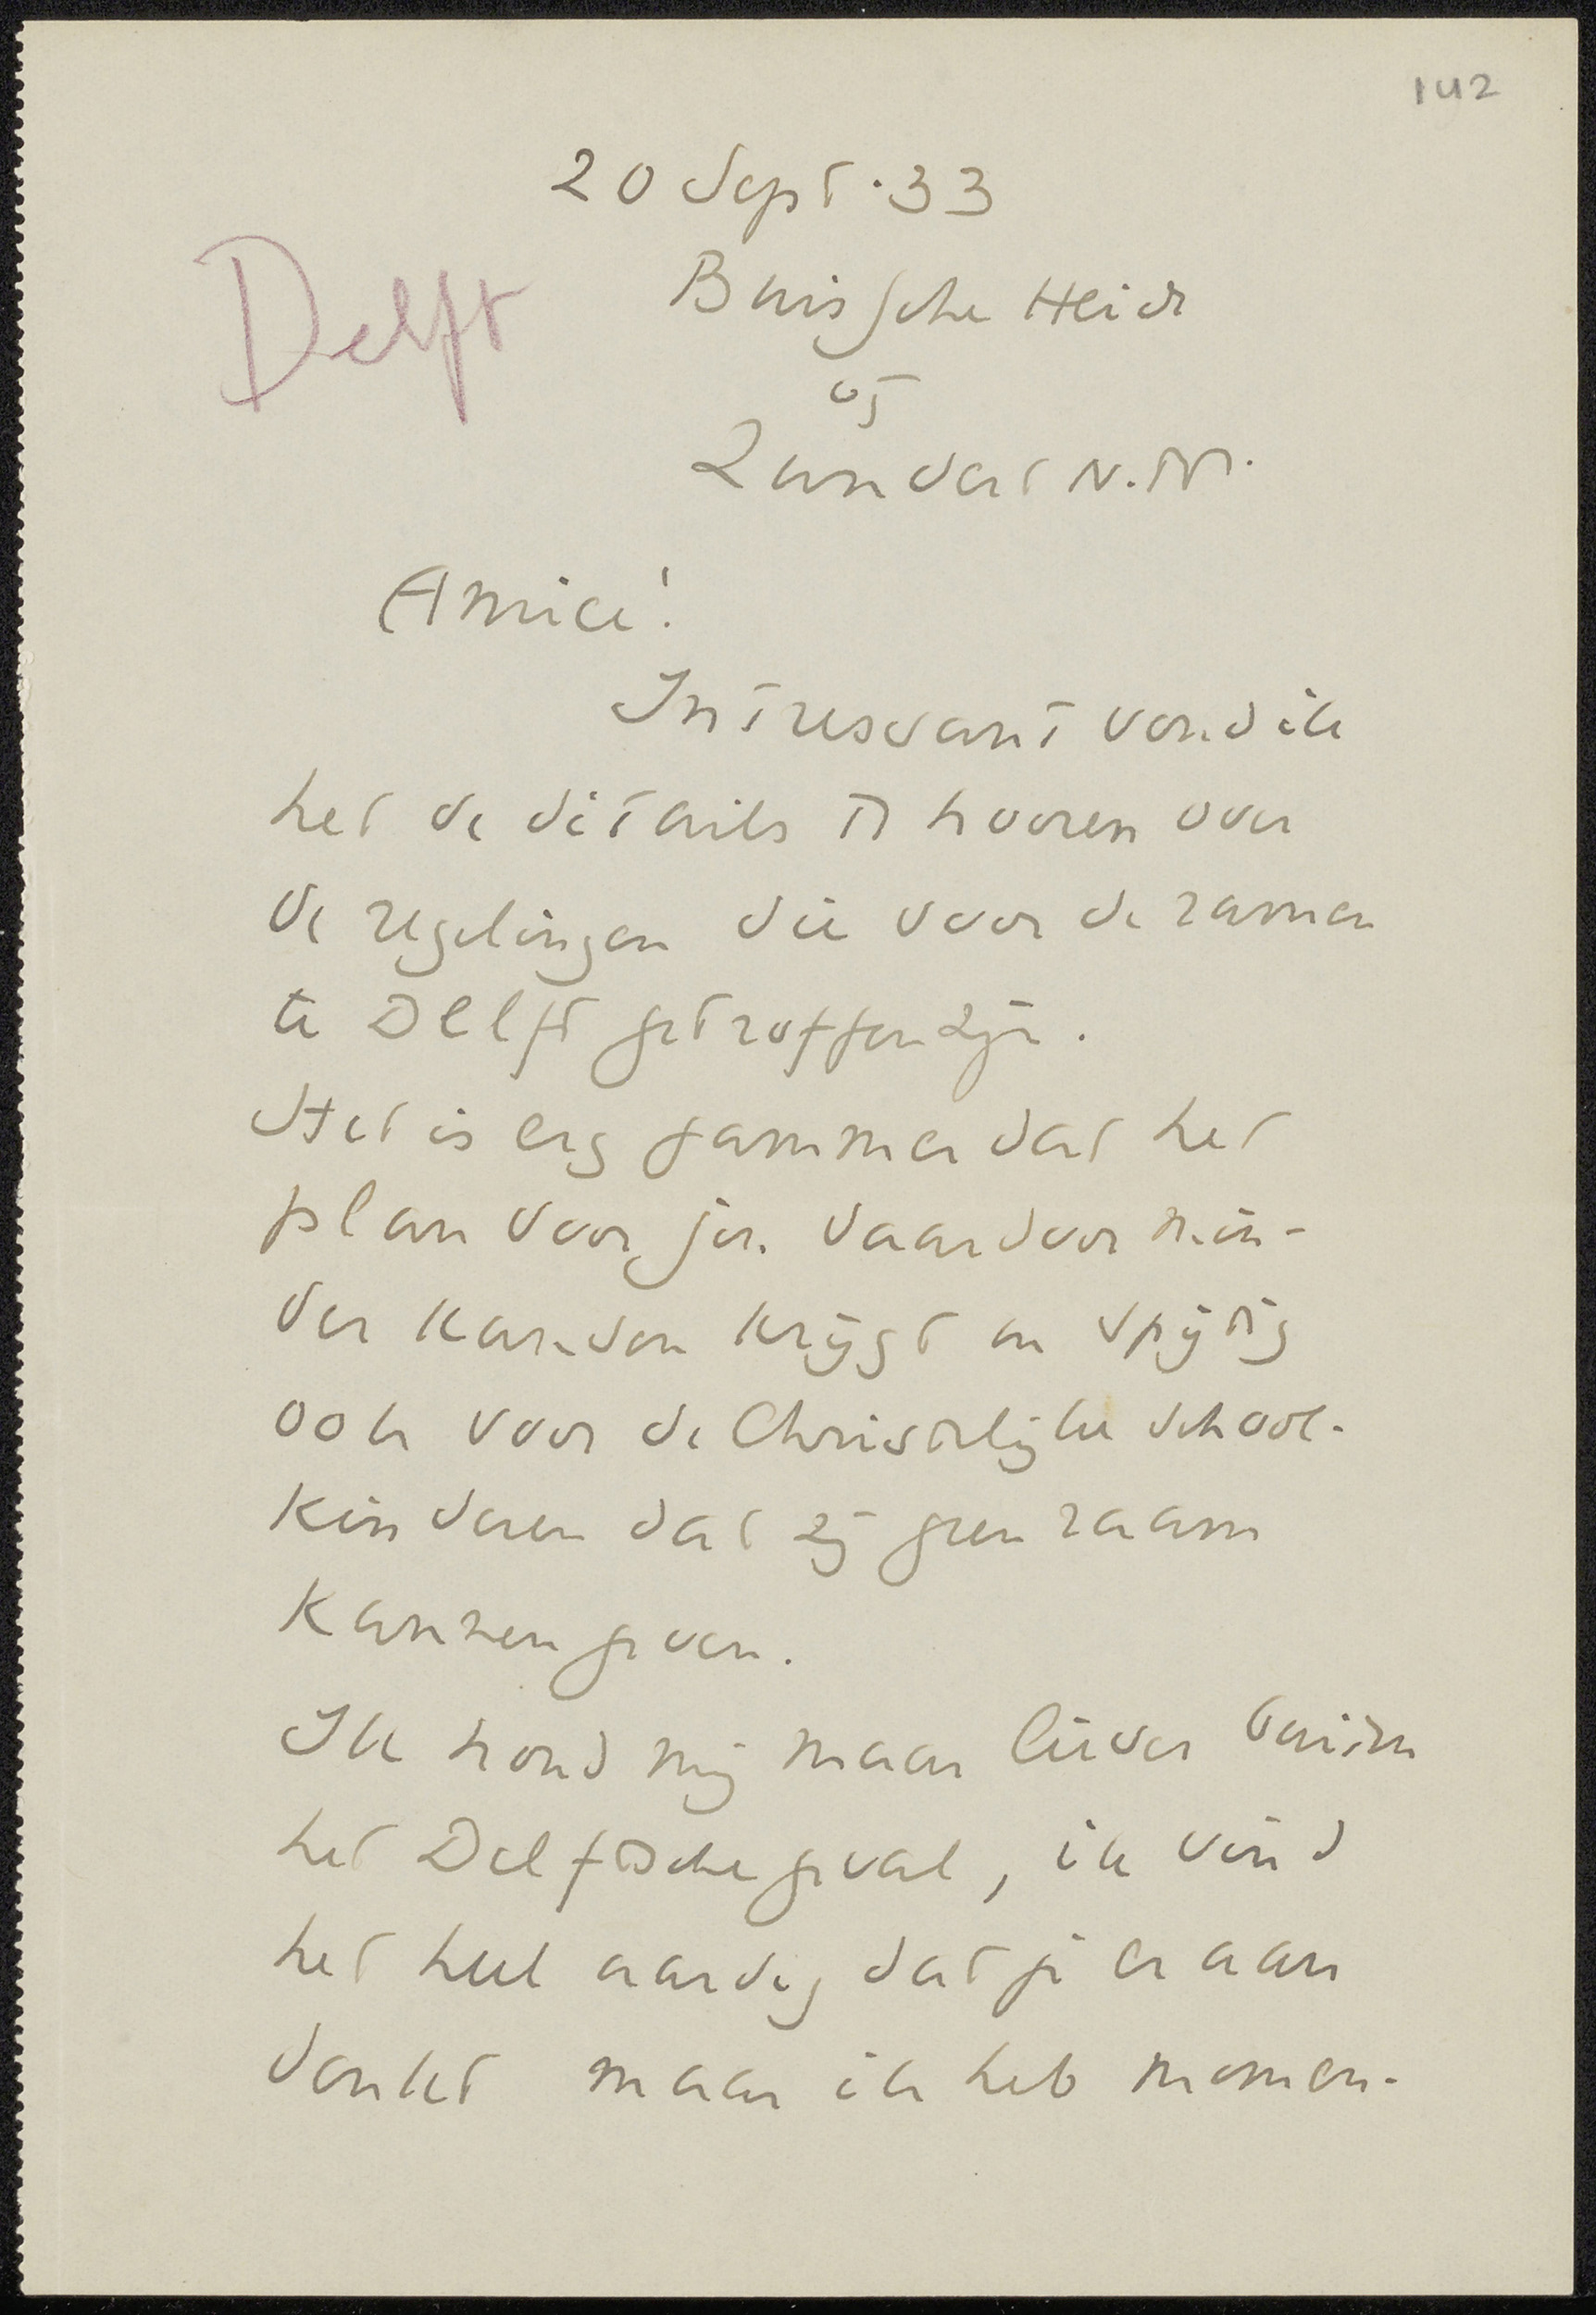 142
20 Sept. 33
Delft
Buissche Heide
bij
Zundert N.Br.
Amice!
Intressant vond ik
het de details te hooren over
de regelingen die voor de ramen
te Delft getroffen zijn.
Het is erg jammer dat het
plan voor jou daardoor min-
der kansen krijgt en spijtig
ook voor de Christelijke school-
kinderen dat zij geen raam
kunnen geven.
Ik houd mij maar liever buiten
het Delftsche geval, ik vind
het heel aardig dat je er aan
denkt maar ik heb momen-